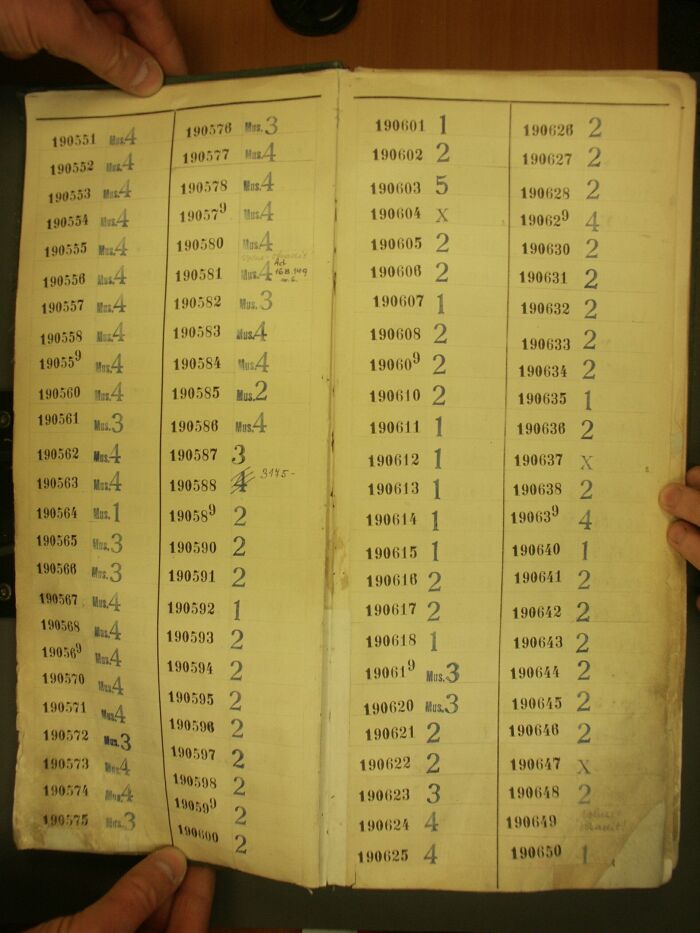 190551 Mus.4
190552 Mus.4
190553 Mus.4
190554 Mus.4
190555 Mus.4
190556 Mus.4
190557 Mus.4
190558 Mus.4
190559 Mus.4
190560 Mus.4
190561 Mus.3
190562 Mus.4
190563 Mus.4
190564 Mus.1
190565 Mus.3
190566 Mus.3
190567 Mus.4
190568 Mus.4
190569 Mus.4
190570 Mus.4
190571 Mus.4
190572 Mus.3
190573 Mus.4
190574 Mus.4
190575 Mus.3
190576 Mus.3
190577 Mus.4
190578 Mus.4
190579 Mus.4
190580 Mus.4
190581 Mus.4 Ad
168.149
190582 Mus.3
190583 Mus.4
190584 Mus.4
190585 Mus.2
190586 Mus.4
190587 3
190588 4 3145-
190589 2
190590 2
190591 2
190592 1
190593 2
190594 2
190595 2
190596 2
190597 2
190598 2
190599 2
190600 2
190601 1
190602 2
190603 5
190604 x
190605 2
190606 2
190607 1
190608 2
190609 2
190610 2
190611 1
190612 1
190613 1
190614 1
190615 1
190616 2
190617 2
190618 1
190619 Mus.3
190620 Mus.3
190621 2
190622 2
190623 3
190624 4
190625 4
190626 2
190627 2
190628 2
190629 4
190630 2
190631 2
190632 2
190633 2
190634 2
190635 1
190636 2
190637 x
190638 2
190639 4
190640 1
190641 2
190642 2
190643 2
190644 2
190645 2
190646 2
190647 x
190648 2
190649
190650 1